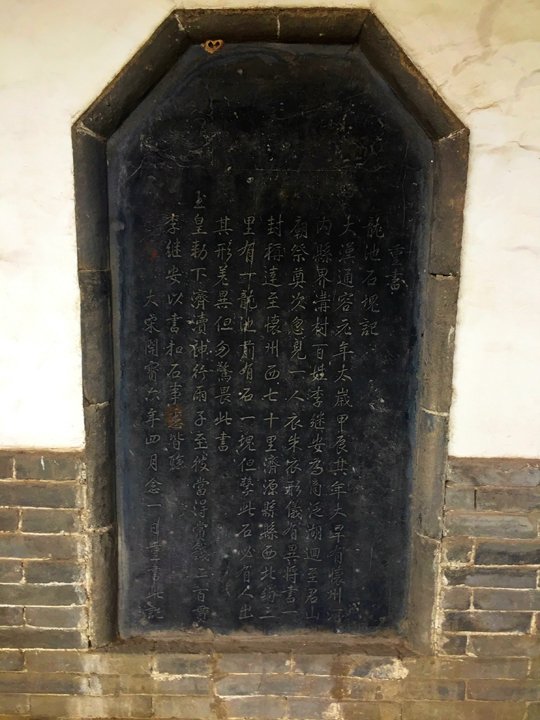 重書
龍池石塊記
大漢通容元年太歲甲辰其年大旱有懷州河
内縣界溝封百姓李继安為商泛湖迴至君山
廟祭奠次忽見一人衣朱衣形儀有異持書一
封稱達至懷州西七十里濟源縣縣西北約三
里有一龍池前有石一塊但擊此石必有人出
其形差異但勿驚畏此書
玉皇勅下濟瀆行雨子至彼當得賞錢二百貫
李继安以書扣石事
大宋開寳六年四月念一日重書此記